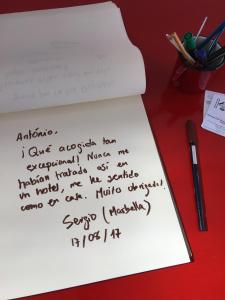 António,
¡Qué acogida tan
excepcional! Nunca me
habían tratado así en
un hotel, me he sentido
como en casa. Muito obrigado!
Sergio (Marbella)
17/08/17